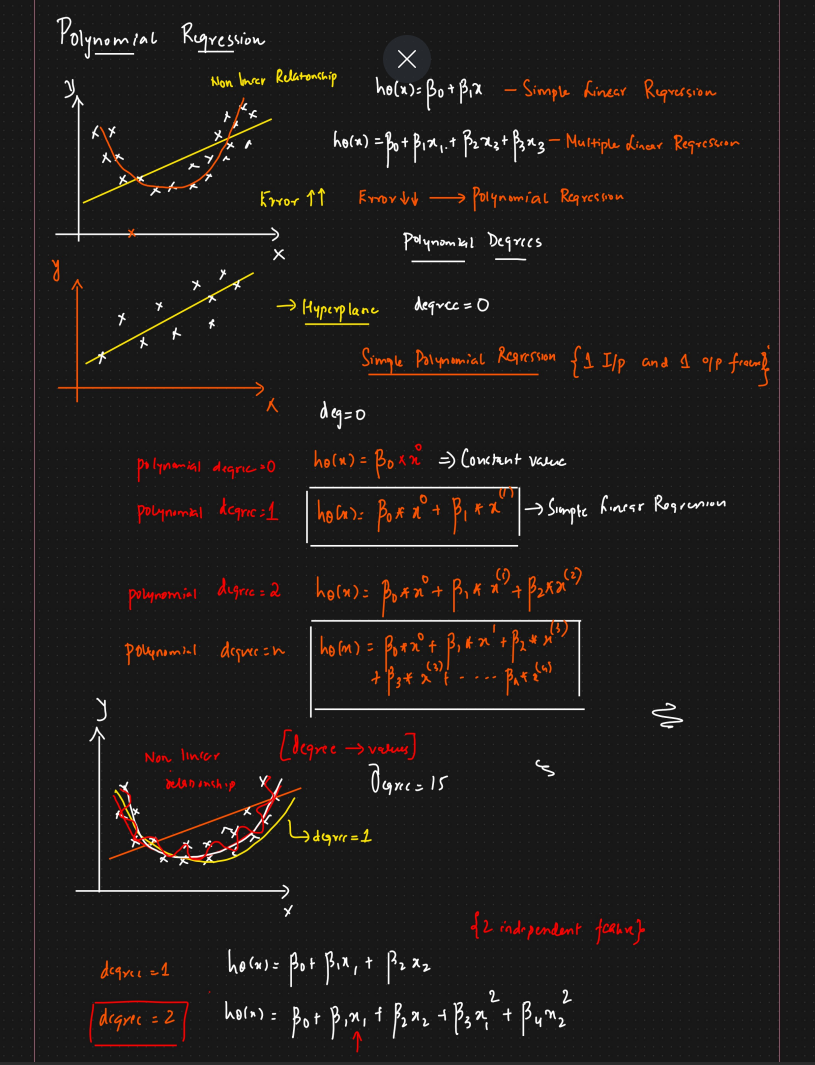 Polynomial Regression
y
Non linear Relationship
hθ(x) = β0 + β1x – Simple Linear Regression
hθ(x) = β0 + β1x1 + β2x2 + β3x3 – Multiple Linear Regression
Error ↑↑ Error ↓↓ → Polynomial Regression
x
Polynomial Degrees
y
→ Hyperplane degree = 0
Simple Polynomial Regression {1 I/p and 1 o/p
x
deg=0
polynomial degree=0 hθ(x) = β0 * x^0 ⇒ Constant value
polynomial degree=1 hθ(x) = β0 * x^0 + β1 * x^(1) → Simple Linear Regression
polynomial degree=2 hθ(x) = β0 * x^0 + β1 * x^(1) + β2 * x^(2)
polynomial degree=n hθ(x) = β0 * x^0 + β1 * x^1 + β2 * x^(3)
+ β3 * x^(3) + ..... βn * x^(n)
y
[degree → values]
Non linear
relationship
Degree = 15
→ degree = 1
x
{2 independent
degree = 1 hθ(x) = β0 + β1x1 + β2x2
degree = 2 hθ(x) = β0 + β1x1 + β2x2 + β3x1^2 + β4x2^2